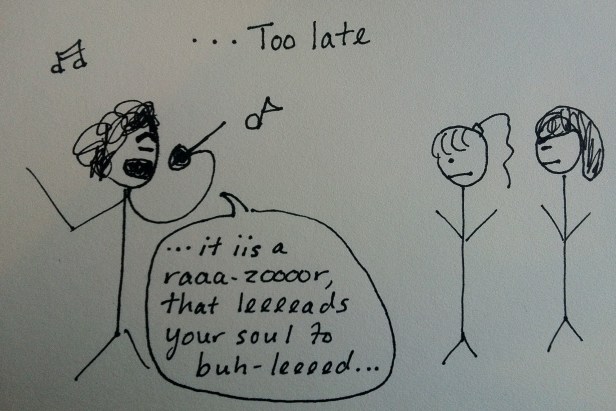 ... Too late
...it iis a
raaa-zoooor,
that leeeeads
your soul to
buh-leeeed...